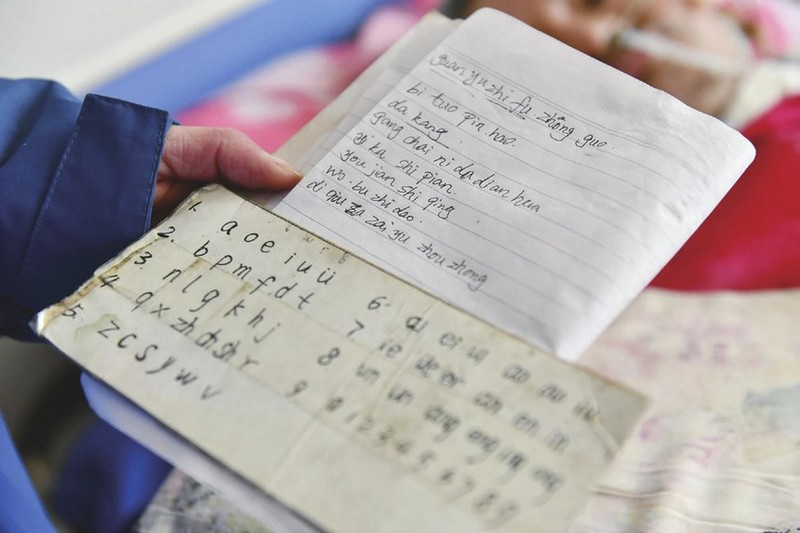 guan yu zhi fu zhong guo.
bi tuo pin hao.
da kang.
gang chai ni da dian hua
yi ka shi pian.
you jian shi qing.
wo. bu zhi dao.
di qiu zai yu zhou zhong
1. a o e i u ü
2. b p m f d t
3. n l g k h j
4. q x zh ch sh r
5. z c s y w v
6. ai ei ui ao ou iu
7 ie üe er an en in
8 un ün ang eng ing ong
9 0 1 2 3 4 5 6 7 8 9